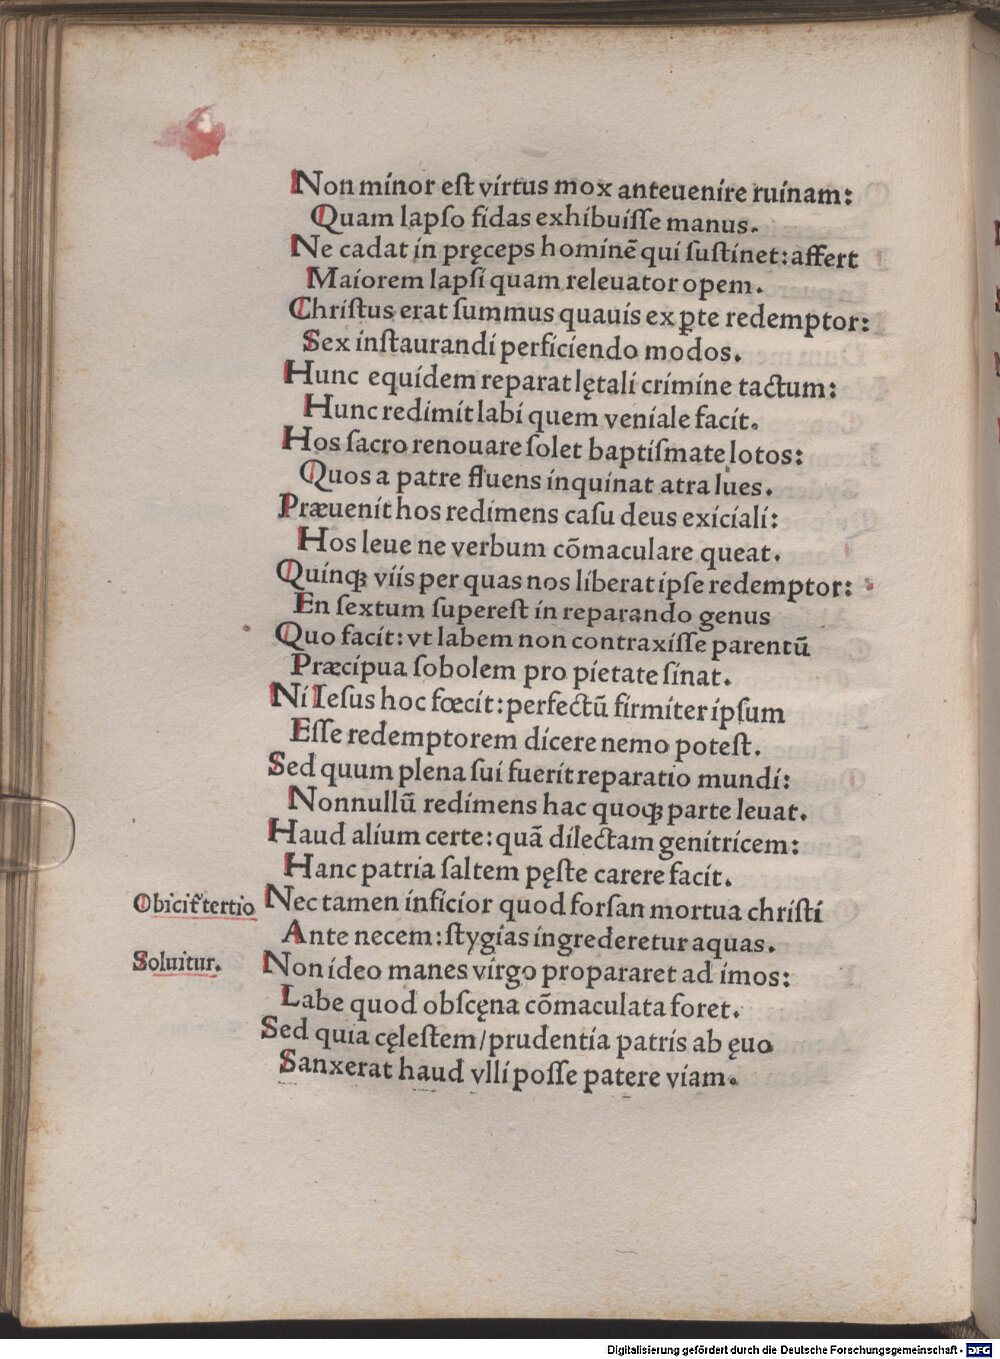 Non minor eſt virtus mox anteuenire ruinam:
Quam lapſo fidas exhibuiſſe manus.
Ne cadat in pręceps hominē qui ſuſtinet: affert
Maiorem lapſi quam releuator opem.
Chriſtus erat ſummus quauis ex ꝑte redemptor:
Sex inſtaurandi perficiendo modos.
Hunc equidem reparat lętali crimine tactum:
Hunc redimit labi quem veniale facit.
Hos ſacro renouare ſolet baptiſmate lotos:
Quos a patre fluens inquinat atra lues.
Præuenit hos redimens caſu deus exiciali:
Hos leue ne verbum cōmaculare queat.
Quinqꝫ viis per quas nos liberat ipſe redemptor:
En ſextum ſupereſt in reparando genus
Quo facit: vt labem non contraxiſſe parentū
Præcipua ſobolem pro pietate ſinat.
Ni Ieſus hoc fœcit: perfectū firmiter ipſum
Eſſe redemptorem dicere nemo poteſt.
Sed quum plena ſui fuerit reparatio mundi:
Nonnullū redimens hac quoqꝫ parte leuat.
Haud alium certe: quā dilectam genitricem:
Hanc patria ſaltem pęſte carere facit.
Obicit᷑ tertio Nec tamen inficior quod forſan mortua chriſti
Ante necem: ſtygias ingrederetur aquas.
Soluitur. Non ideo manes virgo propararet ad imos:
Labe quod obſcęna cōmaculata foret.
Sed quia cęleſtem/prudentia patris ab ęuo
Sanxerat haud vlli poſſe patere viam.
Digitalisierung gefördert durch die Deutsche Forschungsgemeinschaft - DFG